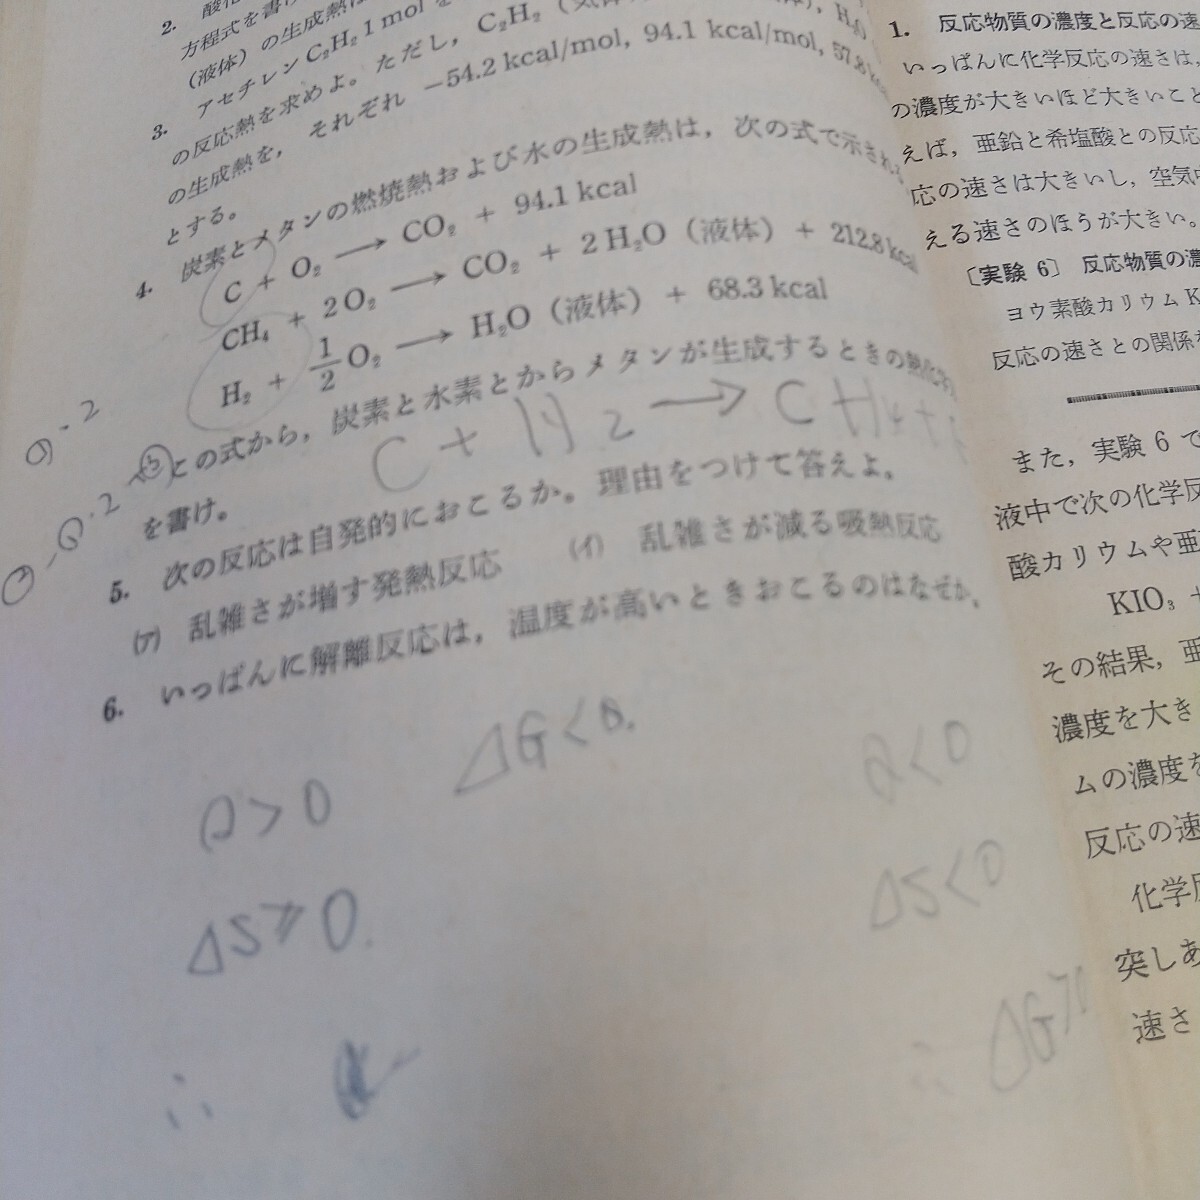 2. 酸化
方程式を書け
(液体)の生成熱は
3. アセチレン C₂H₂ 1 mol を
の反応熱を求めよ。ただし, C₂H₂ (気体
の生成熱を, それぞれ −54.2 kcal/mol, 94.1 kcal/mol, 57.8
とする。
4. 炭素とメタンの燃焼熱および水の生成熱は, 次の式で示され
C + O₂ → CO₂ + 94.1 kcal
CH₄ + 2 O₂ → CO₂ + 2 H₂O (液体) + 212.8 kcal
H₂ + 1/2 O₂ → H₂O (液体) + 68.3 kcal
この式から, 炭素と水素とからメタンが生成するときの
C + H₂ → CH₄ +
を書け。
5. 次の反応は自発的におこるか。理由をつけて答えよ。
(ア) 乱雑さが増す発熱反応 (イ) 乱雑さが減る吸熱反応
6. いっぱんに解離反応は, 温度が高いときおこるのはなぜか。
ΔG<0.
Q>0
Q<0
ΔS≥0.
ΔS<0
∴
∴ ΔG>
1. 反応物質の濃度と反応の速
いっぱんに化学反応の速さは,
の濃度が大きいほど大きいこと
えば, 亜鉛と希塩酸との反応
応の速さは大きいし, 空気中
える速さのほうが大きい。
〔実験 6〕 反応物質の濃
ヨウ素酸カリウム K
反応の速さとの関係を
また, 実験 6 で
液中で次の化学反
酸カリウムや亜
KIO₃ +
その結果, 亜
濃度を大き
ムの濃度を
反応の速
化学反
突しあ
速さ